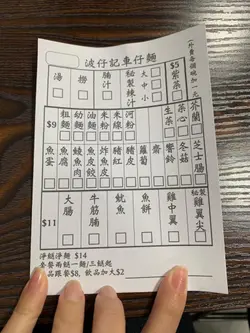 波仔記車仔麵
(外賣每個碗加一元
湯
撈
腩汁
秘製辣汁
大
中
小
$5
紫菜
$9
粗麵
幼麵
油麵
米粉
米線
河粉
生菜
菜心
芥蘭
魚蛋
魚腐
鯪魚肉
魚皮餃
炸魚皮
豬紅
豬皮
蘿蔔
齋
響鈴
冬菇
芝士腸
$11
大腸
牛筋腩
魷魚
魚餅
雞中翼
秘製雞翼尖
淨餸淨麵 $14
查餐兩餸一麵/三餸起
品跟餐$8, 飲品加大$2